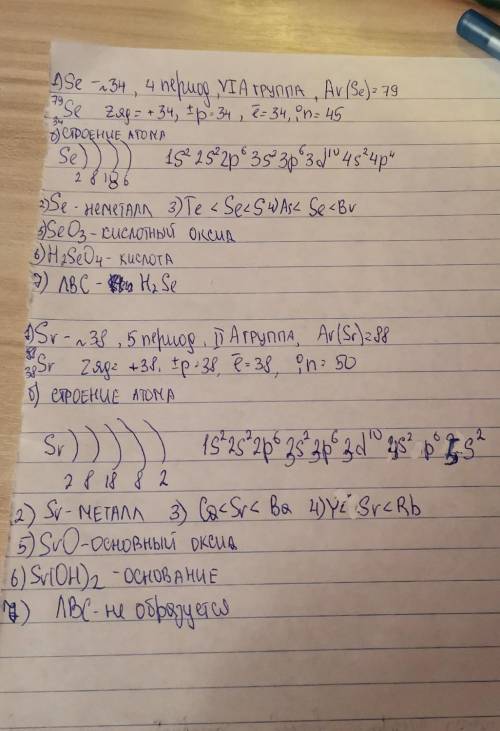 1) Se - №34, 4 период, VIA группа, Ar(Se)=79
⁷⁹₃₄Se Zяд = +34, ⁺¹p = 34, ē = 34, ⁰n = 45
б) СТРОЕНИЕ АТОМА
Se ) ) ) ) 1S² 2S² 2p⁶ 3S² 3p⁶ 3d¹⁰ 4S² 4p⁴
2 8 18 6
2) Se - неметалл 3) Te < Se < S 4) As < Se < Br
5) SeO3 - кислотный оксид
6) H2SeO4 - кислота
7) ЛВС - H2Se
1) Sr - №38, 5 период, II А группа, Ar(Sr)=88
⁸⁸₃₈Sr Zяд = +38, ⁺¹p = 38, ē = 38, ⁰n = 50
б) СТРОЕНИЕ АТОМА
Sr ) ) ) ) ) 1S² 2S² 2p⁶ 3S² 3p⁶ 3d¹⁰ 4S² p⁶ 5S²
2 8 18 8 2
2) Sr - МЕТАЛЛ 3) Ca < Sr < Ba 4) Y < Sr < Rb
5) SrO - основный оксид
6) Sr(OH)2 - ОСНОВАНИЕ
7) ЛВС - не образуется